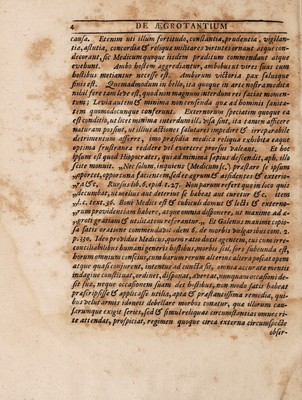 4 DE ÆGROTANTIUM
causa. Etenim uti illum fortitudo, constantia, prudentia, vigilan-
tia, astutia, concordia & reliquæ militares virtutes ornant atque con-
decorant, sic Medicum quoque itidem præditum commendant atque
evehunt. Ambo hostem aggrediuntur, ambobus et vires suas cum
hostibus metiantur necesse est. Amborum victoria pax salusque
finis est. Quemadmodum in bello, ita quoque in arte nostra medica
nihil fere tam leve est, quod non magnum interdum rei faciat momen-
tum; Levia autem & minima non censenda quæ ad hominis sanita-
tem quomodocunque conferunt. Externorum speciatim quoque ea
est conditio, ut licet minima interdum illi visa sint, ita tamen afficere
naturam possint, ut illius actiones salutares impedire & irreparabile
detrimentum afferre, imo præsidia medico reliqua exhibita eaque
optima frustranea reddere vel evertere prorsus valeant. Et hoc
ipsum est quod Hippocrates, qui ad minima sæpius descendit, aph. illo
scite monuit. „Nec solum, inquiens [Medicum], præstare se ipsum
„oportet, opportuna facientem, sed & ægrum & assidentes & exterio-
„ra &c, Rursus lib. 6. epid. t.27. Non parum refert quomodo
decumbat, ut melius aut deterius se habeat aut curetur &c. item
l.c. text. 36. Boni Medici est & cubiculi domus & lecti & externo-
„rum providentiam habere, atque omnia disponere, ut maxime ad æ-
„groti gratiam & utilitatem referantur. „ Et Galenus maxime copio-
sa satis oratione commendavit idem 6. de morbis vulgaribus com. 2.
p. 330. Ideo providus Medicus, quam rato ducet egentem, tac cum irre-
conciliabilibus humani generis hostibus, morbis scil. sive subeunda est,
horum omnium conscius, cum harum rerum alterius altera posset opem
atque quasi conjurent, intentus ad cuncta sit, omnia accurata mentis
indagine constituat, ordinet, disponat, & vereat, nunquam occasioni de-
sit suæ, neque occasionem suam det hostibus, non modo satis habeat
præscripsisse & applicasse utilia, apta & præstantissima remedia, qui-
bus velut armis idoneis debellare morbos conatur, qua illirum cau-
sarumque exigit series, sed & simul reliquas circumstantias omnes ri-
te attendat, prospiciat, regimen quoque circa externa circumspecte
obser-